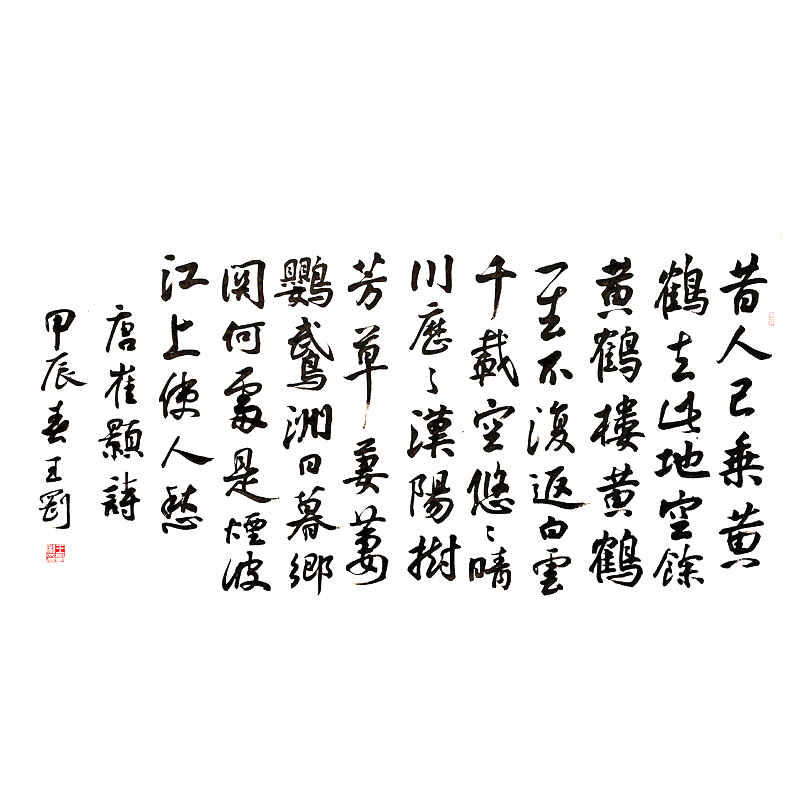 昔人已乘黄
鶴去此地空餘
黄鶴樓黄鶴
一去不復返白雲
千載空悠々晴
川歷々漢陽樹
芳草萋萋
鸚鵡洲日暮鄉
関何處是煙波
江上使人愁
唐崔顥詩
甲辰春王剛